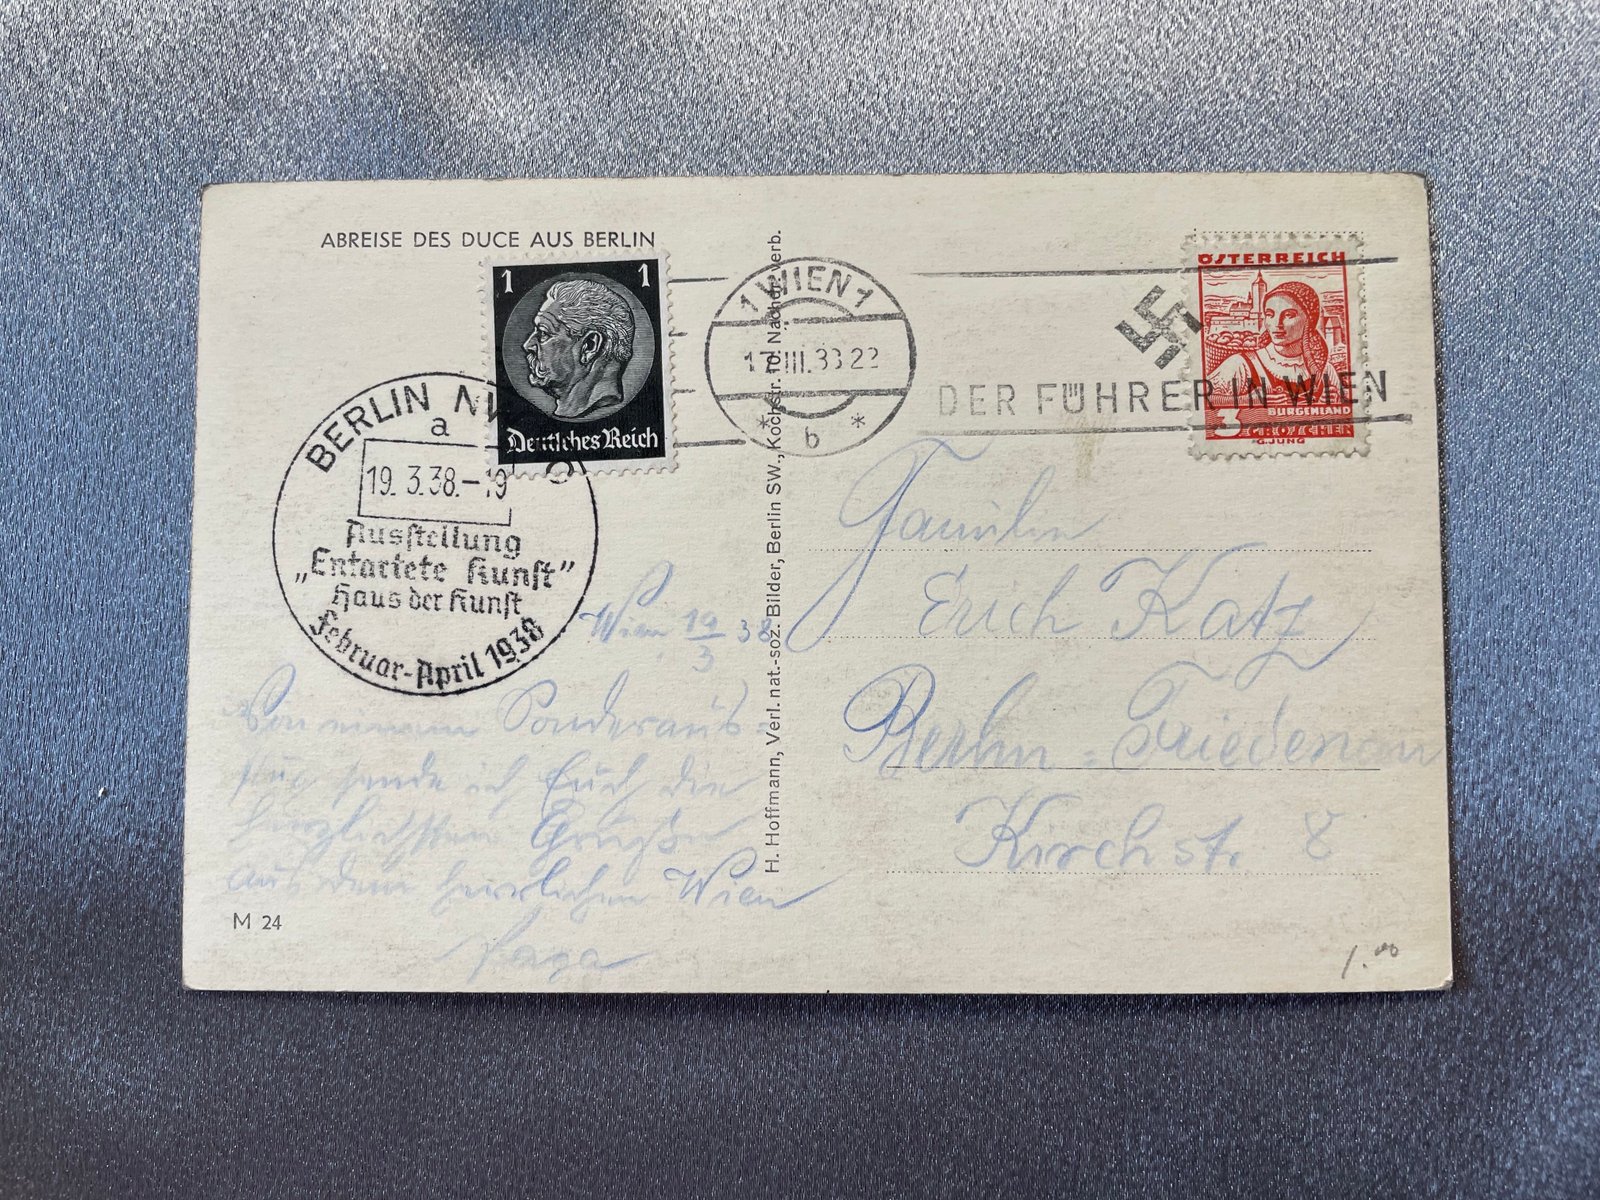 ABREISE DES DUCE AUS BERLIN
1 1
Deutsches Reich
1 WIEN 1
17. III. 38 22
* b *
DER FÜHRER IN WIEN
ÖSTERREICH
BURGENLAND
3 GROSCHEN
G.JUNG
BERLIN NW
a
19. 3. 38.–19
Ausstellung
„Entartete Kunst”
Haus der Kunst
Februar-April 1938
H. Hoffmann, Verl. nat.-soz. Bilder, Berlin SW., Kochstr. 10. Nachdr. verb.
Wien 19/3 38
Von einem Sonderaus-
flug sende ich Euch die
herzlichsten Grüße
aus dem herrlichen Wien
Familie
Erich Katz
Berlin-Friedenau
Kirchstr. 8
M 24
1.00